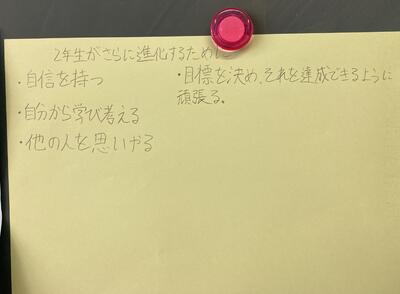 2年生がさらに進化するために
・自信を持つ
・自分から学び考える
・他の人を思いやる
・目標を決め、それを達成できるように
頑張る。